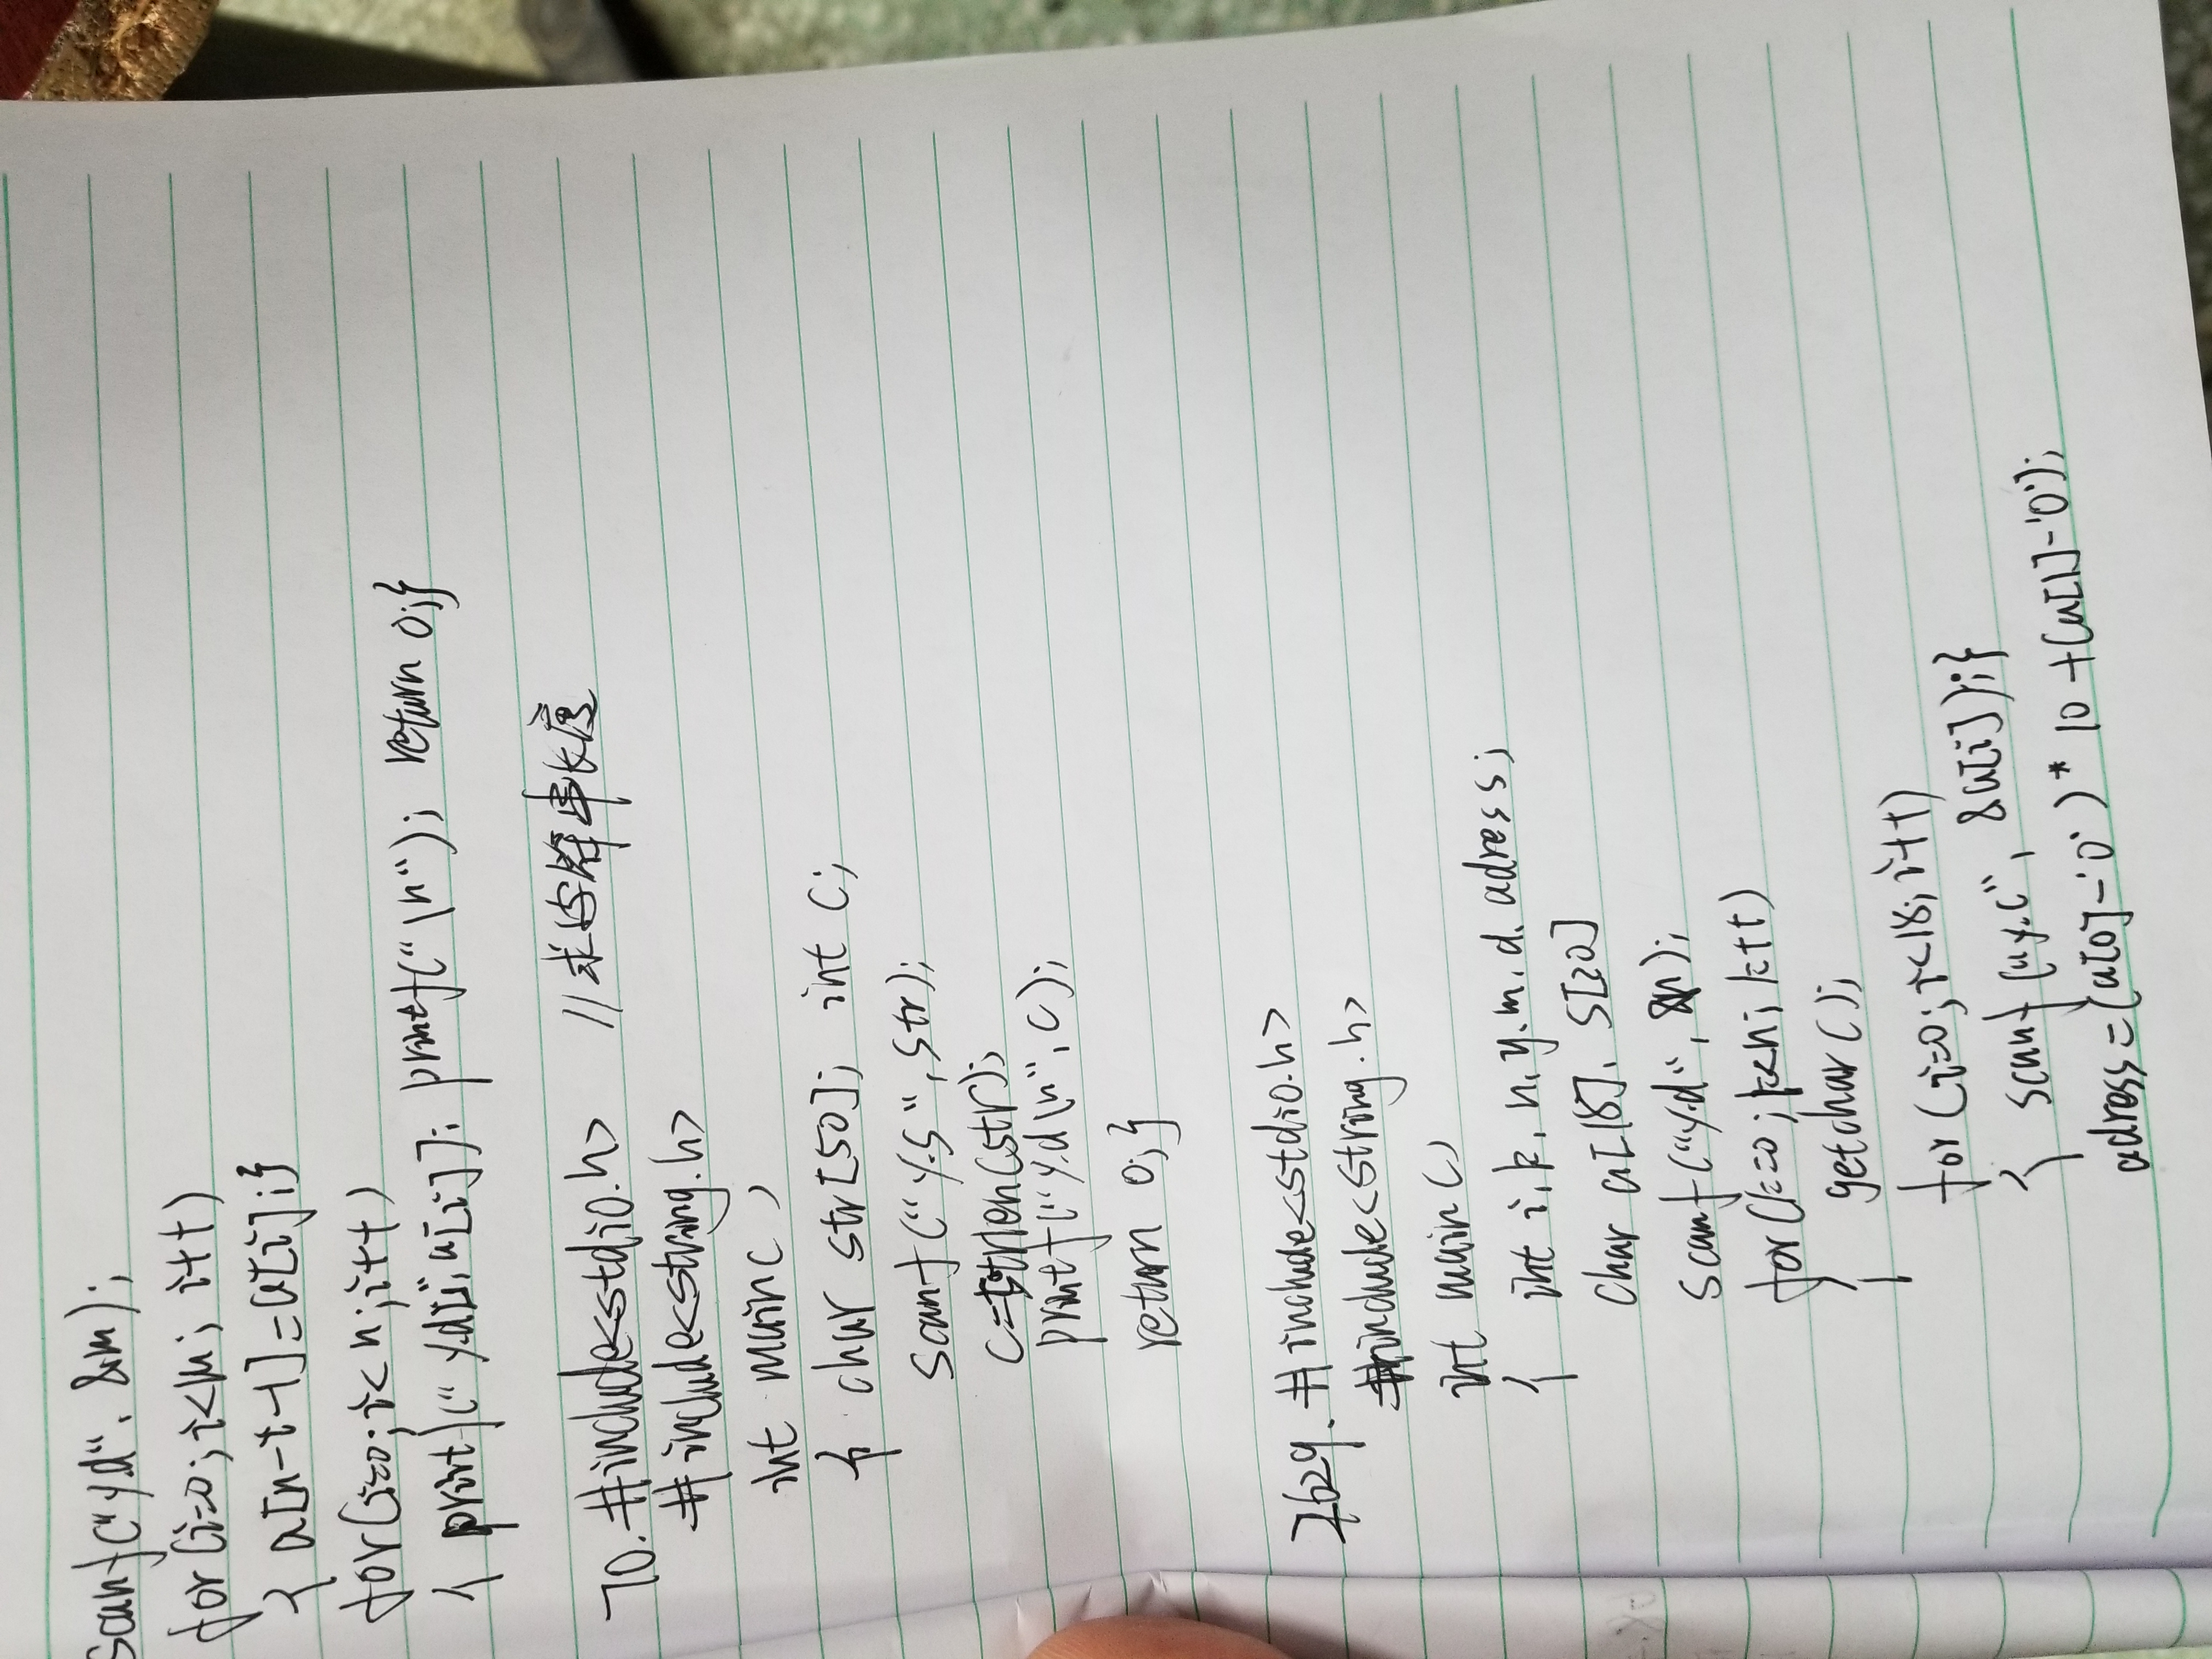 scanf("%d", &m);
for(i=0;i<m; i++)
{ a[n-t-1]=a[i];}
for(i=0;i<n;i++)
{ printf("%d␣",a[i]); printf("\n"); return 0;}
70. #include<stdio.h> //求字符串长度
#include<string.h>
int main( )
{ char str[50]; int c;
scanf("%s",str);
c=strlen(str);
printf("%d\n",c);
return 0;}
2629. #include<stdio.h>
#include<string.h>
int main()
{ int i,k,n,y,m,d,adress;
char a[18], s[20]
scanf("%d", &n);
for(k=0;k<n;k++)
{ getchar();
for(i=0;i<18;i++)
{ scanf("%c", &a[i]);}
adress=(a[0]-'0')*10+(a[1]-'0');